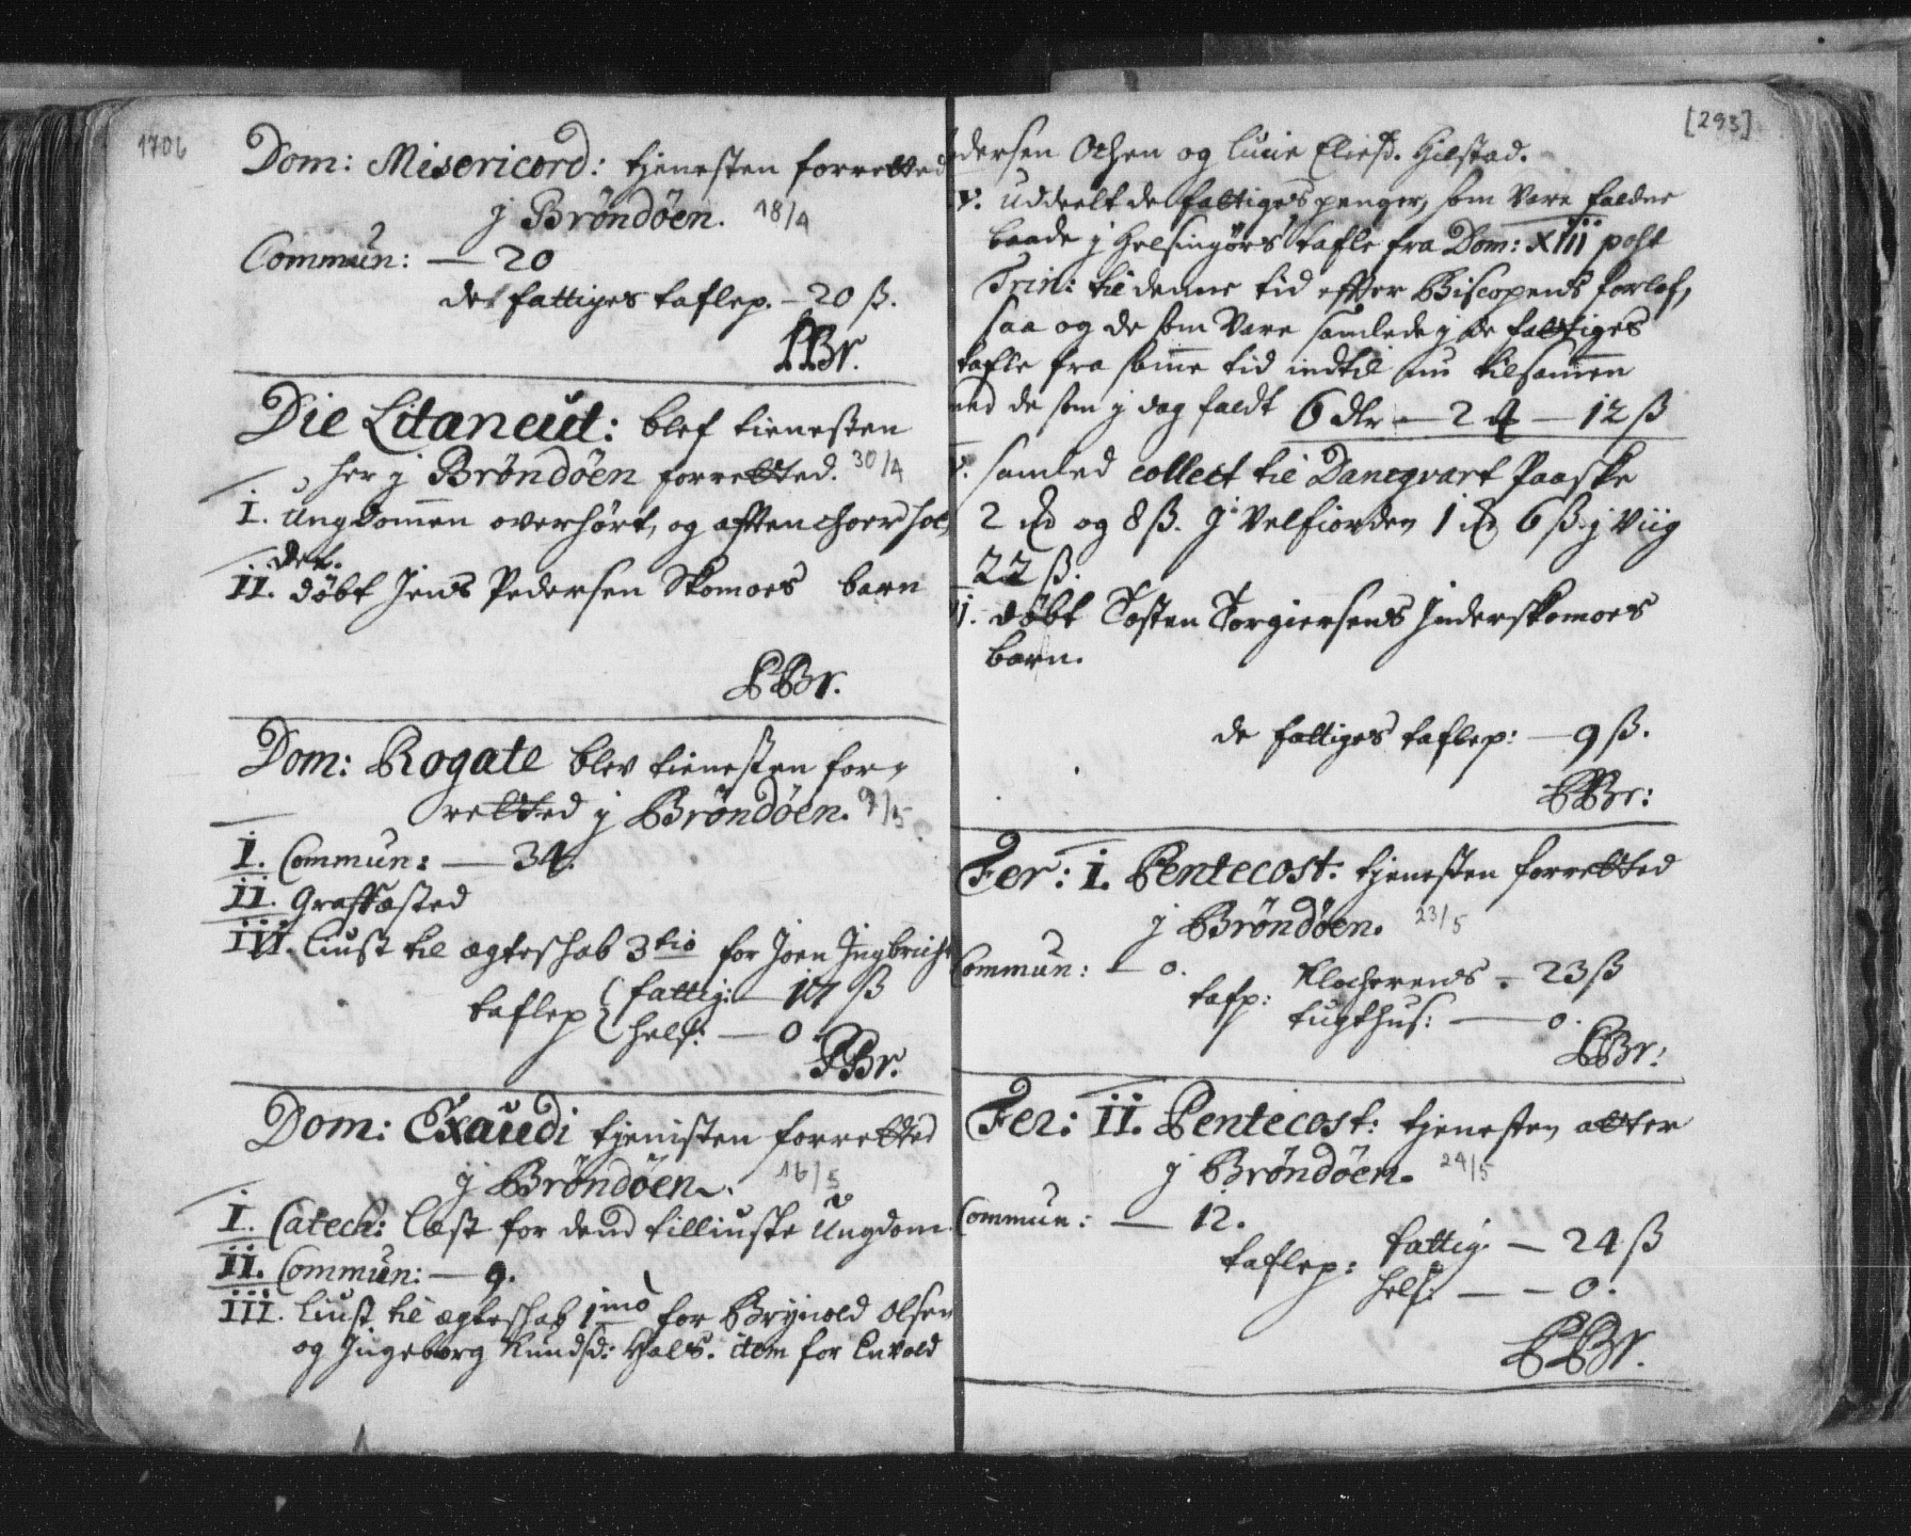 1706
Dom: Misericord: tjenesten forretted
j Bröndöen. 18/4
Commun: — 20
de fattiges taflep. – 20 ß.
PBr.
Die Litaneut: blef tienesten
her j Bröndöen forretted. 30/4
I. Ungdommen overhørt, og aften choer hol-
det.
II. døbt Jens Pedersen Skomoes barn
PBr.
Dom: Rogate blev tienesten for-
retted j Bröndöen. 9/5
I. Commun: — 34.
II. Graffæsted
III. liust til ægteschab 3tio for Joen Ingbricht
taflep { fattig: — 17 ß
helf: — 0.
PBr.
Dom: Exaudi tjenisten forretted
j Bröndöen. 16/5
I. Catech: læst for dend tilliuste Ungdom
II. Commun: — 9.
III. liust til ægteschab 1mo for Brynold Olsen
og Ingeborg Knudsd: Hals. item for Envold
[293]
dersen Olsen og lucie Eliesd. Hilstad.
v. uddeelt de fattiges penger, som vare faldne
baade j Helsingørs tafle fra Dom: XIII post
Trin: til denne tid effter Biscopens forlof,
saa og de som vare samlede j de fattiges
tafle fra samme tid indtil nu tilsammen
med de som j dag faldt 6 dlr — 2 — 12 ß
v. samled collect til Danqvart Paaske
2 og 8 ß. J Velfiorden 1 6 ß j Viig
22 ß.
j. døbt Tosten Torgiersens Inderskomoes
barn.
de fattiges taflep: — 9 ß.
PBr:
Fer: I. Pentecost: tjenesten forretted
j Bröndöen. 23/5
Commun: – 0.
tafp: Klocherens – 23 ß
tugthus: — 0.
PBr:
Fer: II. Pentecost: tjenesten atter
j Bröndöen. 24/5
Commun: — 12.
taflep: fattig. — 24 ß
helf: — – 0.
PBr.